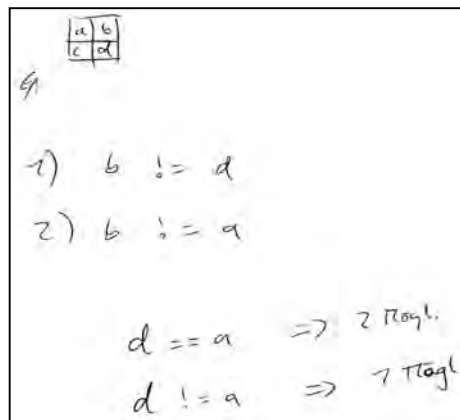 a b
c d
1) b != d
2) b != a
d == a => 2 Mögl.
d != a => 1 Mögl